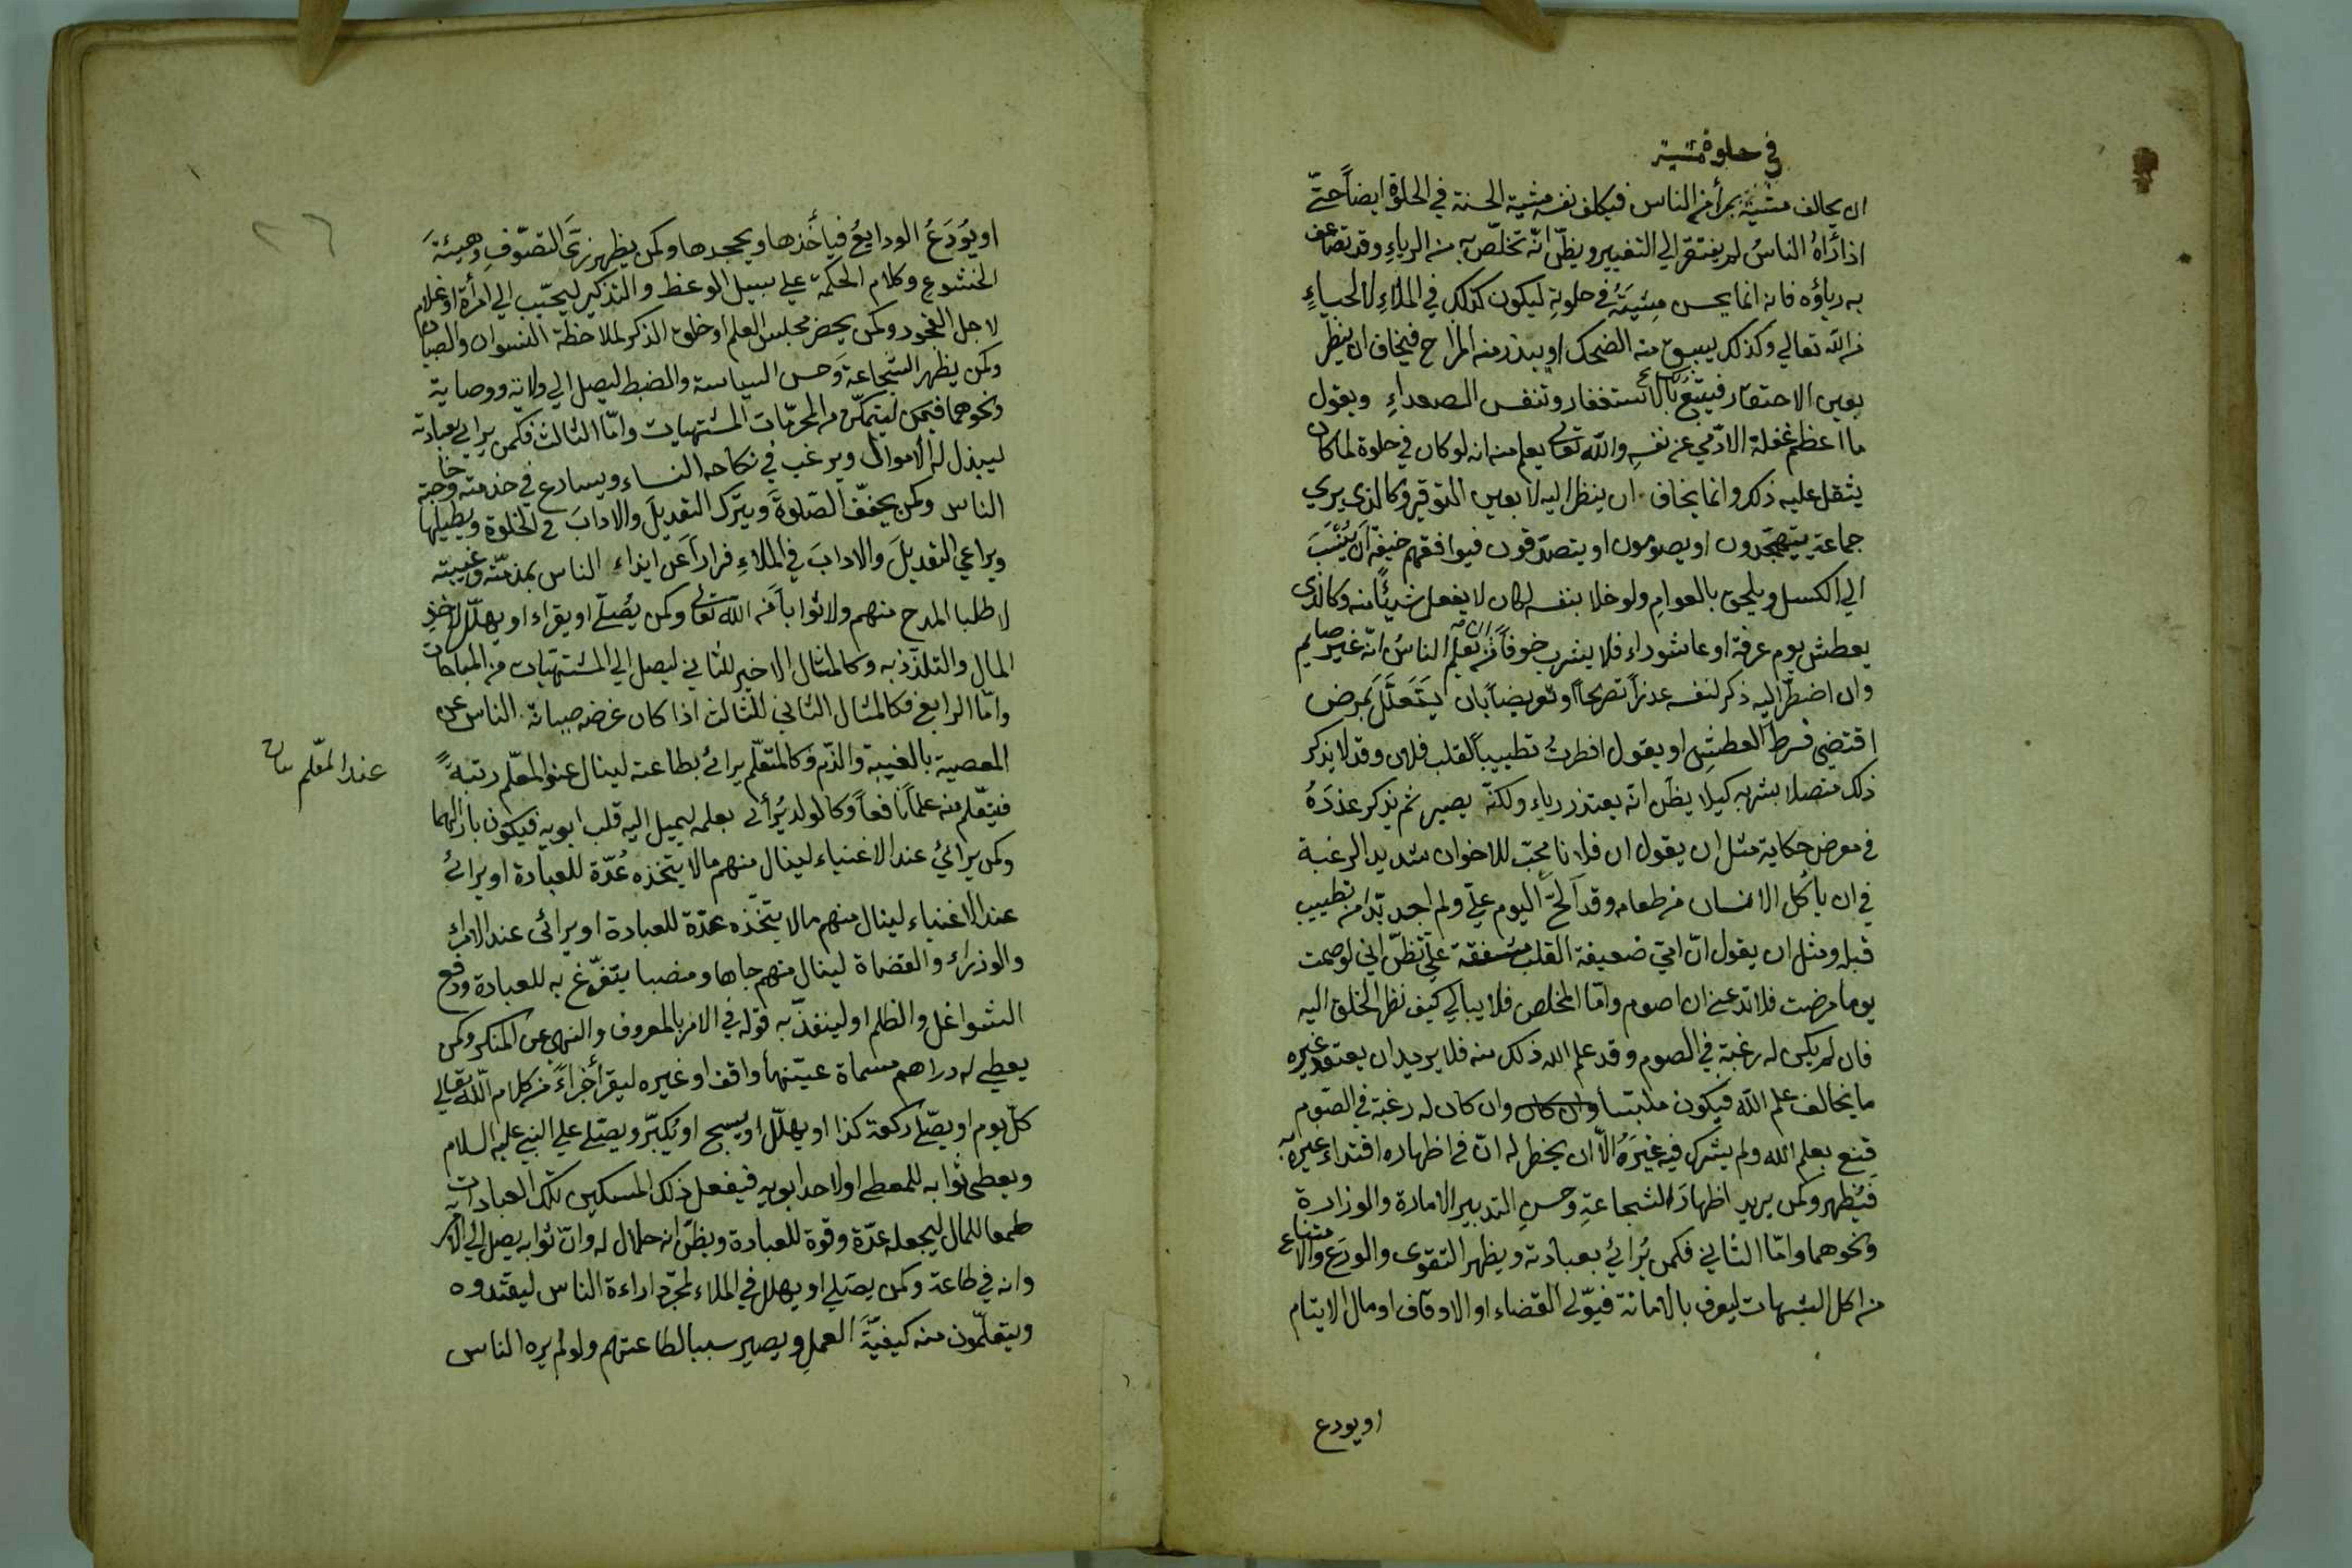 في خلوة مشية
ان يخالف مشيتة بمرأ من الناس فيكلف نفسه مشية الحسنة في الخلوة ايضاً حتّى
اذا رَاهُ الناسُ لم يفتقر الي التغيير ويظنّ انّه تخلّص به من الرياءِ وقد تضاعف
به رياؤه فانه انما يحسن مِشيَتَهُ في خلوته ليكون كذلك في الملاءِ لا لحياءِ
من الله تعالي وكذلك يسبق منه الضحك او يبدر منه المزاح فيخاف ان ينظر
بعين الاحتقار فيتبعُ بالاستغفار وتنفس الصعداءِ ويقول
ما اعظم غفلة الادّمي عن نفسِه والله تعالى يعلم منه انه لو كان في خلوة لما كان
يثقل عليه ذلك وانما يخاف ان ينظر اليه لا بعين التوقير وكالذي يري
جماعة يتهجّدون او يصومون او يتصدّقون فيوافقهم خيفة اَن يُنسَبَ
الي الكسل ويلحق بالعوامِ ولو خلا بنفسه لكان لا يفعل شيئًا منه وكالذي
يعطش يوم عرفة او عاشوراء فلا يشرب خوفاً من تعلم الناسُ انّه غير صايم
وان اضطرّ اليه ذكر لنفسه عذراً تصريحاً او تعريضاً بان يَتَعَلَّلَ بمرض
اقتضي فرط العطشِ او يقول افطرتُ تطييباً لقلب فلان وقد لا يذكر
ذلك متصلا بشربه كيلا يظنَ انه يعتذر رياء ولكنّه يصبر ثم يذكر عذرَهُ
في معرض حكاية مثل ان يقول ان فلانا محبّ للاخوان شديد الرغبة
في ان يأكل الانسان من طعامه وقد اَلحَّ اليوم عليّ ولم اجد بدّا من تطييب
قبله ومثل ان يقول انّ امّي ضعيفة القلب مشفقة عليّ تظنّ اني لو صمت
يوما مرضت فلا تدعني ان اصوم وامّا المخلص فلا يبالي كيف نظر الخلق اليه
فان لم يكن له رغبة في الصوم وقد علم الله ذلك منه فلا يريد ان يعتقد غيره
ما يخالف علم الله فيكون ملبتسا وان كان وان كان له رغبة في الصّوم
قنع بعلم الله ولم يشرك فيه غيرَهُ الاّ ان يخطر له انّ في اظهاره اقتداء غيره به
فيُظهر وكمن يريد اظهارَ الشجاعةِ وحسنِ التدبير الامارة والوزارة
ونحوهما وامّا الثاني فكمن يُرائيُ بعبادته ويظهر التقوى والورَع والامتناع
من اكل الشبهات ليعرف بالامانة فيوّلى القضاء او الاوقاف او مال الايتام
او يودع
او يُودَعُ الودايعُ فيأخذها ويجحدها وكمن يظهر زيَّ التصوّفِ وهيئةَ
الخشوعِ وكلام الحكمة علي سبيل الوعظ والتذكير ليحبّب الي امرأة او غلام
لاجل الفجور وكمن يحضر مجلس العلم او خلق الذكر لملاحظة النسوان والصبيان
وكمن يظهر الشجاعةَ وَحسن السياسة والضبط ليصل الي ولاية ووصاية
ونحوهما فيتمكن ليتمكّن من المحرّمات المشتهيات وامّا الثالث فكمن يرايي بعبادته
ليبذل له الاموال ويرغب في نكاحه النساء ويسارع في خدمته وحاجته
الناس وكمن يخفّف الصّلوةَ ويترك التعديلَ والادابَ في الخلوة ويطيلها
ويراعي التعديلَ والادابَ في الملاءِ فراراً عَن ايذاء الناس بمذمّته وغيبته
لا طلبا المدح منهم ولا ثواباً من الله تعالى وكمن يُصلّي او يقراء او يهلّل لاخذِ
المال والتلذّذ به وكالمثال الاخير للثاني ليصل الي المشتهيات من المباحات
وامّا الرابع فكالمثال الثاني للثالث اذا كان غرضه صيانة الناس عن
المعصية بالغيبة والذّم وَكالمتعلّم يرائيُ بطاعته لينال عند المعلّم رتبةً
عند المعلّم
فيتعّلم منه علماً نافعاً وَكالولد يُرأى بعلمه ليميل اليه قلب ابويه فيكون بارّا لهما
وكمن يرائيُ عند الاغنياء لينال منهم مالا يتخذه عُدّة للعبادة او يرائيُ
عند الاغنياء لينال منهم مالا يتخّذه عدّة للعبادة او يرائى عند الامراءِ
والوزراء والقضاة لينال منهم جاها ومنصبا يتفرّغ به للعبادة ودفع
الشواغل والظلم او لينفذّ به قوله في الامر بالمعروف والنهي عن المنكر وكمن
يعطي له دراهم مسماة عيّنها واقف او غيره ليقرأ جزاءً من كلام اللّه تعالي
كلّ يوم او يصّلي ركعة كذا او يهلّل او يسبح او يُكبّر ويصّلي علي النبي عليه السلام
ويعطي ثوابه للمعطي او لاحد ابويه فيفعل ذلك المسكين تلك العبادات
طمعا للمال ليجعله عدّة وقوة للعبادة ويظنّ انه حلال له وانّ ثوابه يصل الي الامر
وانه في طاعة وكمن يصّلي او يهلل في الملاء لمجرّد اراءة الناس ليقتدوه
ويتعلّمون منه كيفيّةَ العملِ ويصير سببا لطاعتهم ولو لم يره الناس